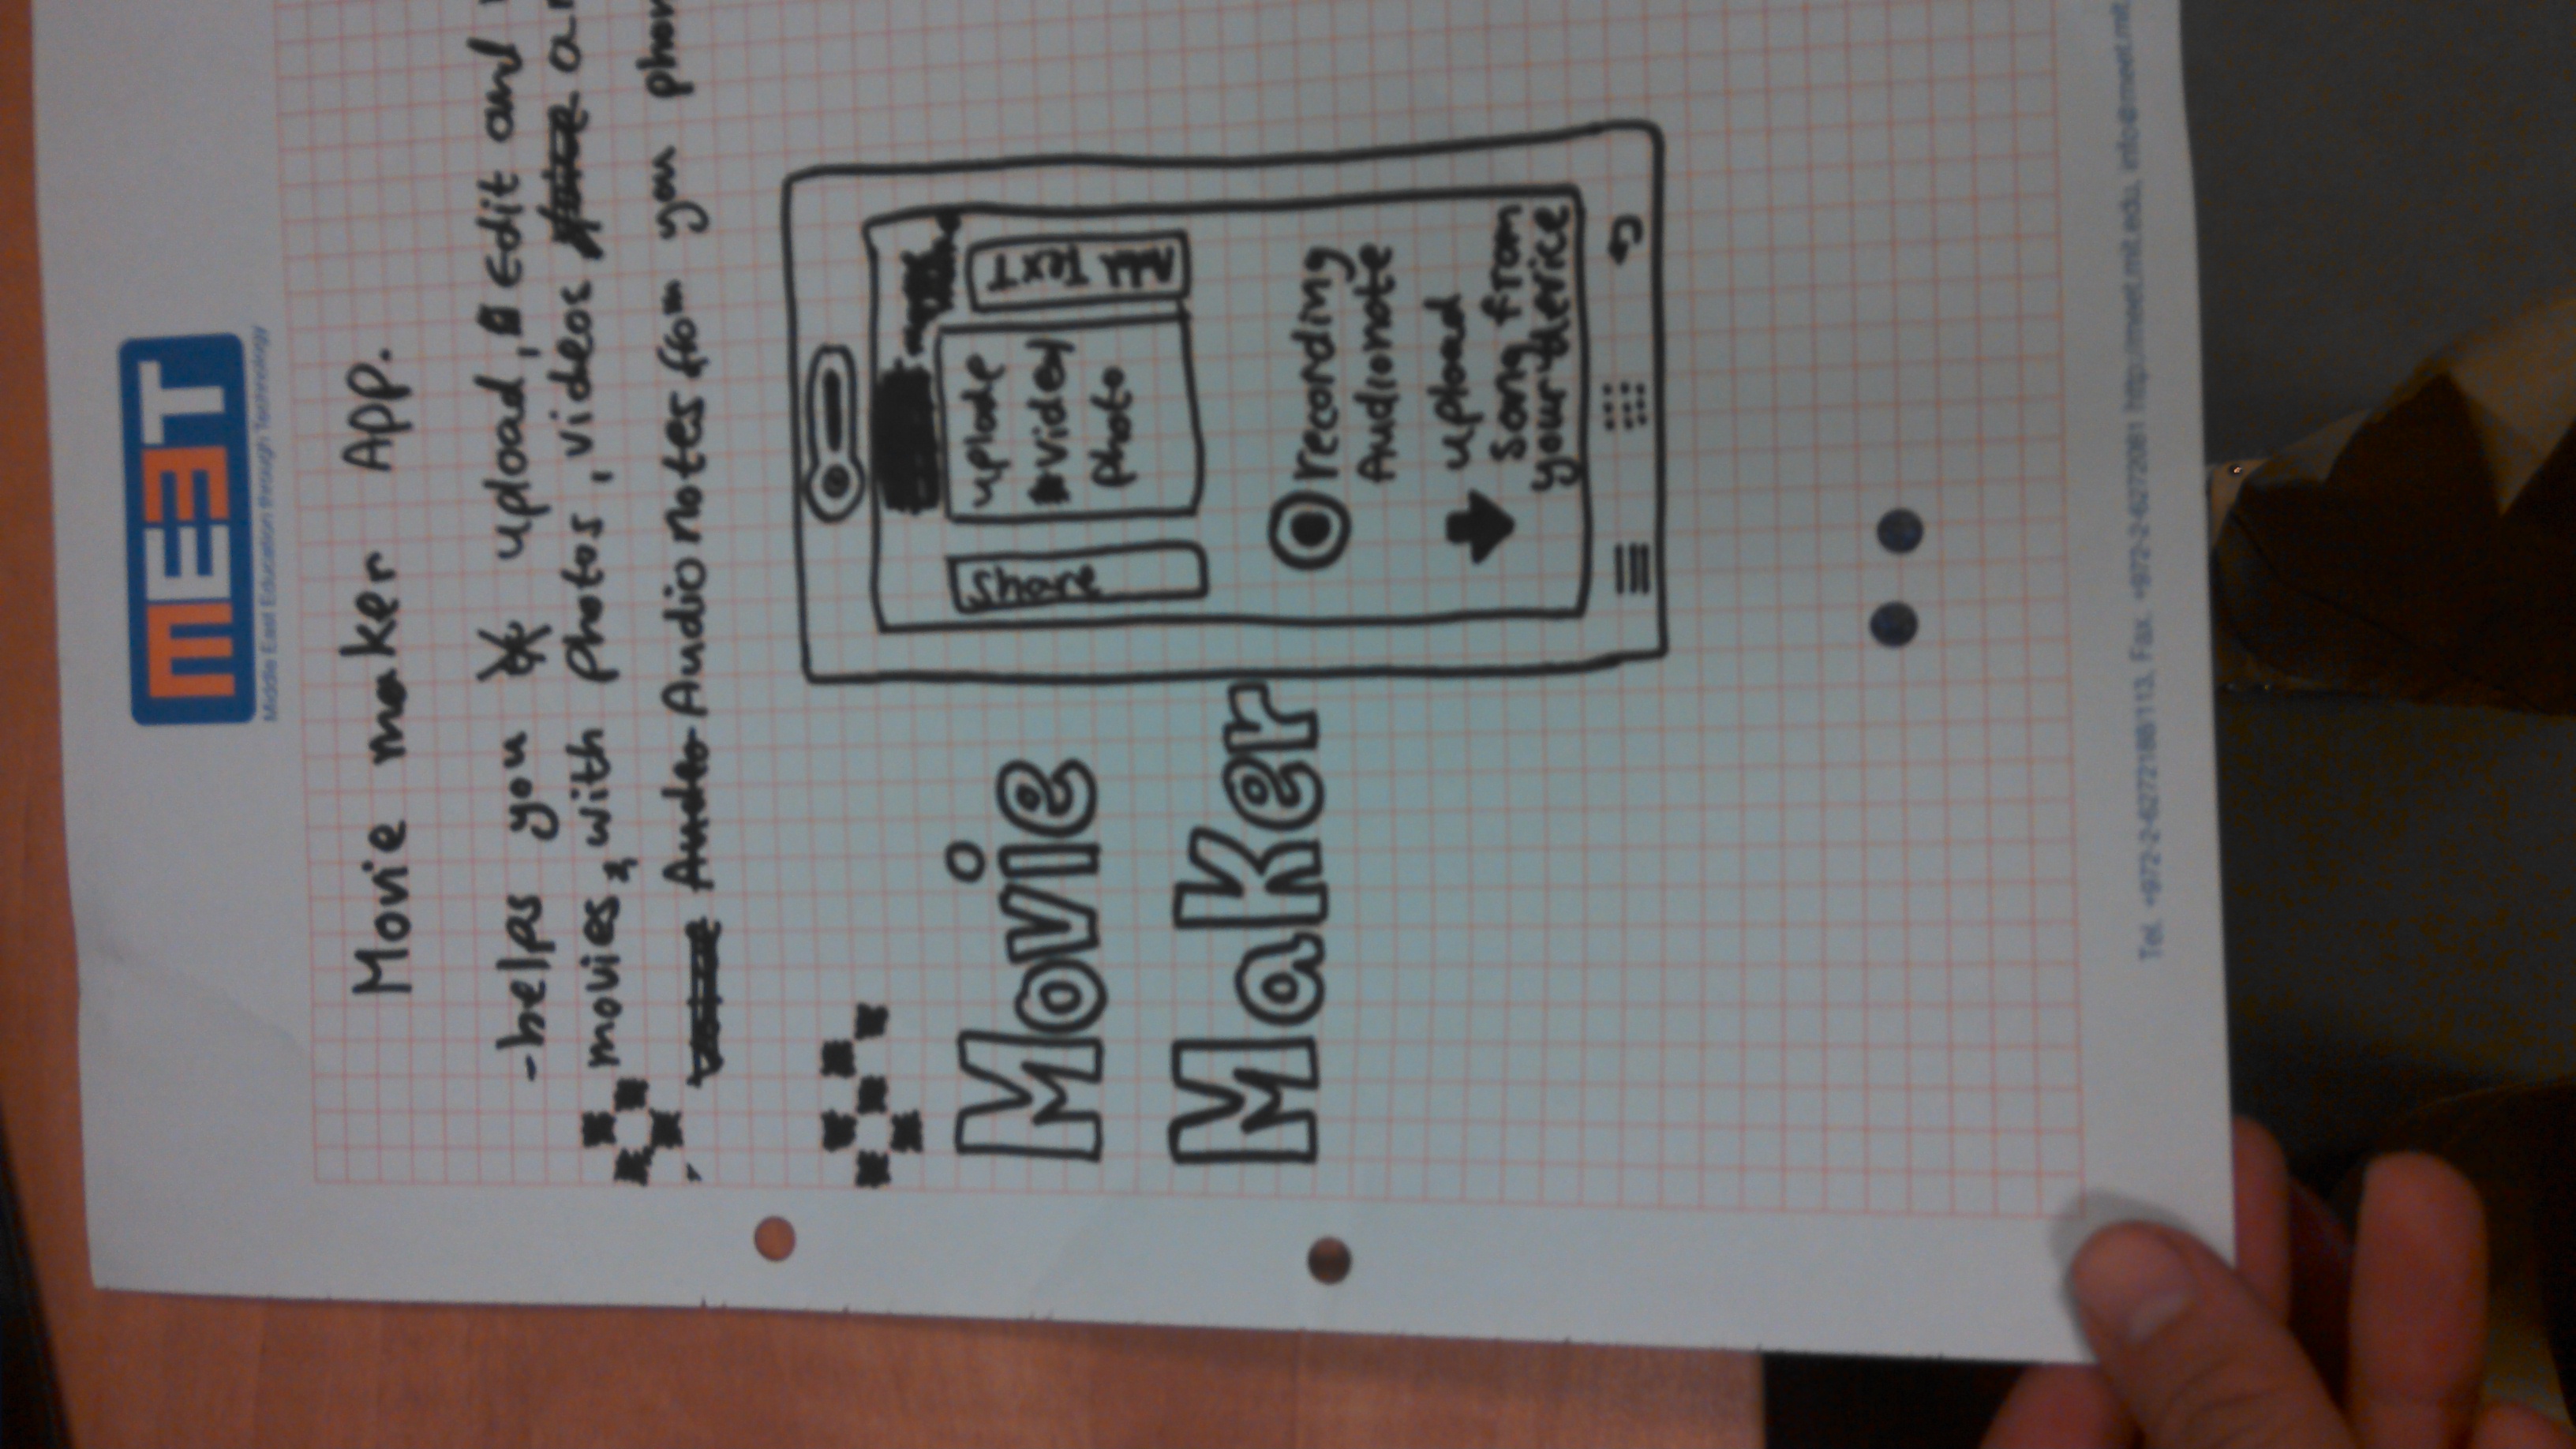 MEET
Middle East Education through Technology
Movie maker App.
-helps you upload, Edit and
movies, with photos, videos
Audio notes from you
Movie
Maker
Share
uplode
video/
photo
Add Text
recording
Audionote
upload
song from
your device
Tel. +972-2-6272188/113, Fax. +972-2-6272081 http://meet.mit.edu,